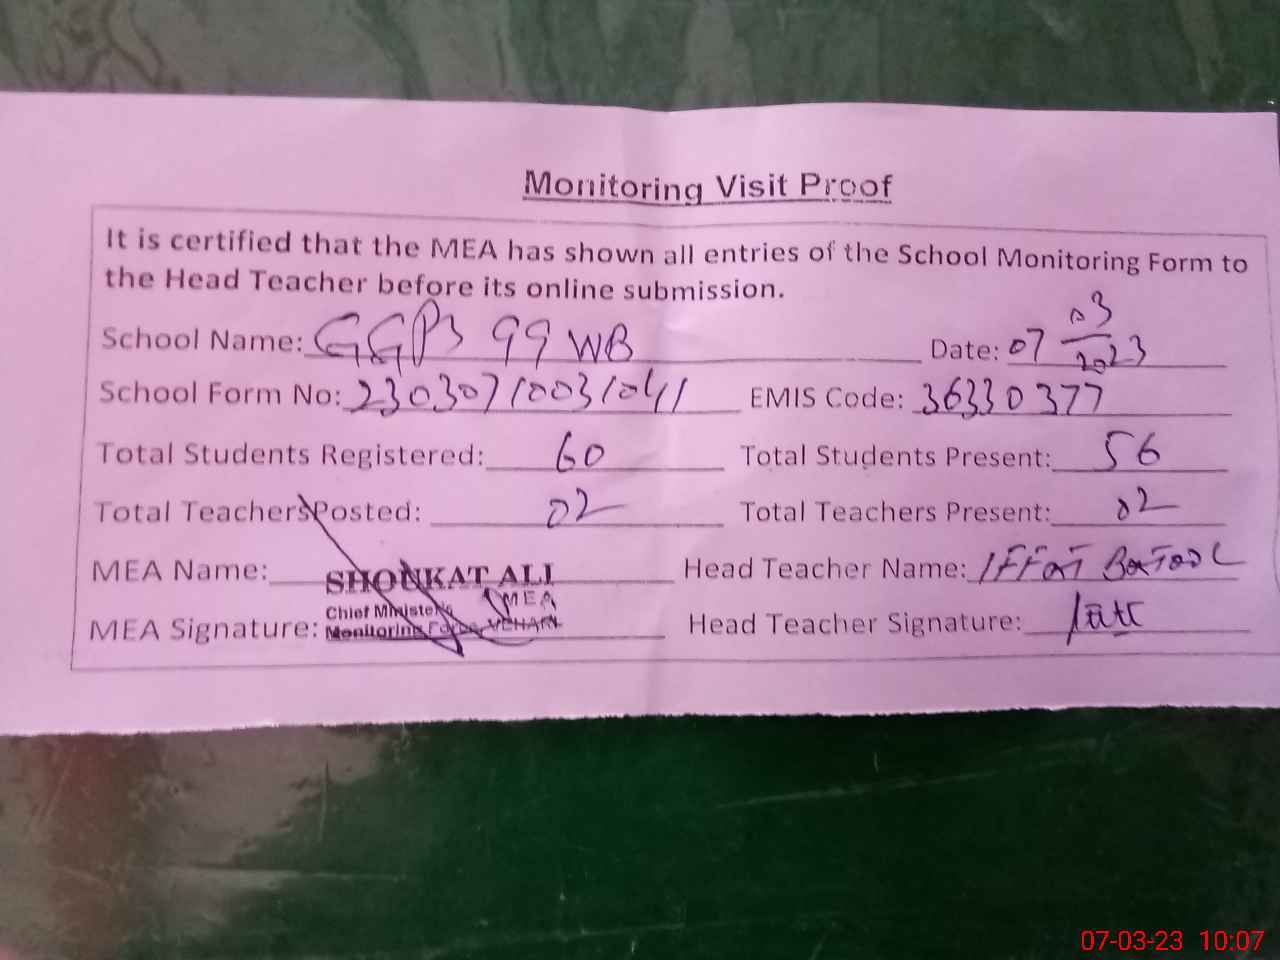 Monitoring Visit Proof
It is certified that the MEA has shown all entries of the School Monitoring Form to
the Head Teacher before its online submission.
School Name: GGPS 99 WB Date: 07/03/2023
School Form No: 23030710031041 EMIS Code: 36330377
Total Students Registered: 60 Total Students Present: 56
Total Teachers Posted: 02 Total Teachers Present: 02
MEA Name: SHOUKAT ALI Head Teacher Name: IFFAT BATOOL
MEA
MEA Signature: Chief Minister's
Monitoring Force, VEHARI Head Teacher Signature:
07-03-23 10:07